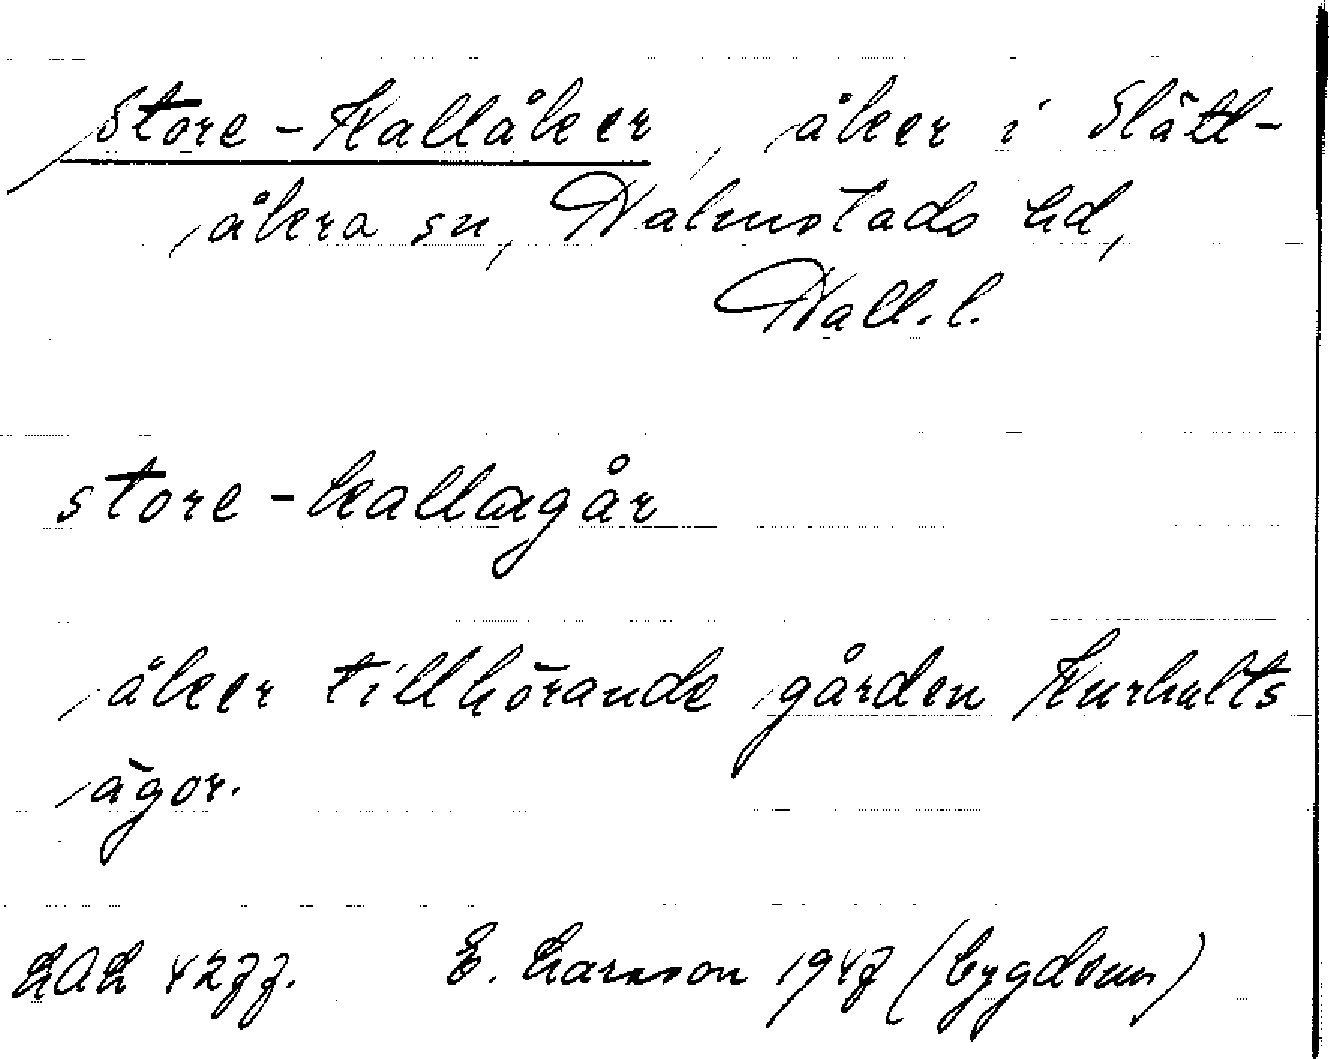 Store-Kallåker, åker i Slätt-
åkra sn, Halmstads hd,
Hall.l.
store-kallagår
åker tillhörande gården Kurhults
ägor.
LAL 4277. E. Larsson 1947 (bygdeun)